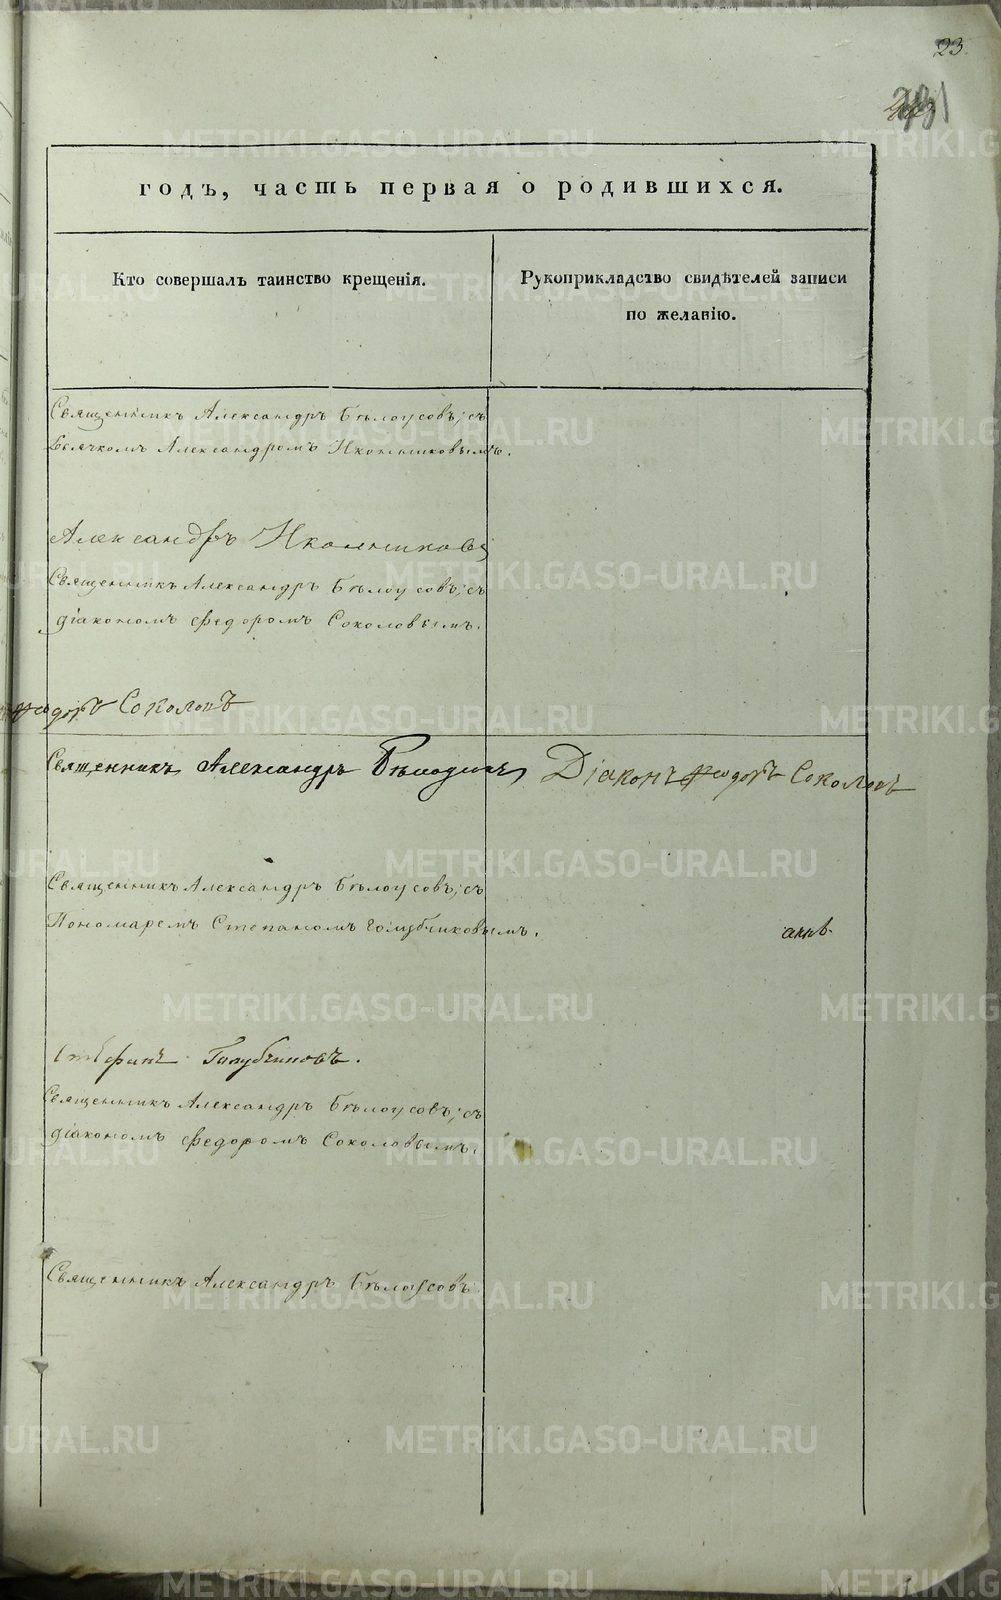 23
годъ, часть первая о родившихся.
Кто совершалъ таинство крещенія.
Рукоприкладство свидѣтелей записи
по желанію.
Священникъ Александръ Бѣлоусовъ; съ
Дьячкомъ Александромъ Иконниковымъ.
Александръ Иконниковъ
Священникъ Александръ Бѣлоусовъ; съ
діакономъ Федоромъ Соколовымъ.
Феодоръ Соколовъ
Священникъ Александръ Бѣлоусовъ
Діаконъ Феодоръ Соколовъ
Священникъ Александръ Бѣлоусовъ; съ
Пономаремъ Степаномъ Голубчиковымъ.
Стефанъ Голубчиковъ.
Священникъ Александръ Бѣлоусовъ; съ
діакономъ Федоромъ Соколовымъ.
Священникъ Александръ Бѣлоусовъ
METRIKI.GASO-URAL.RU